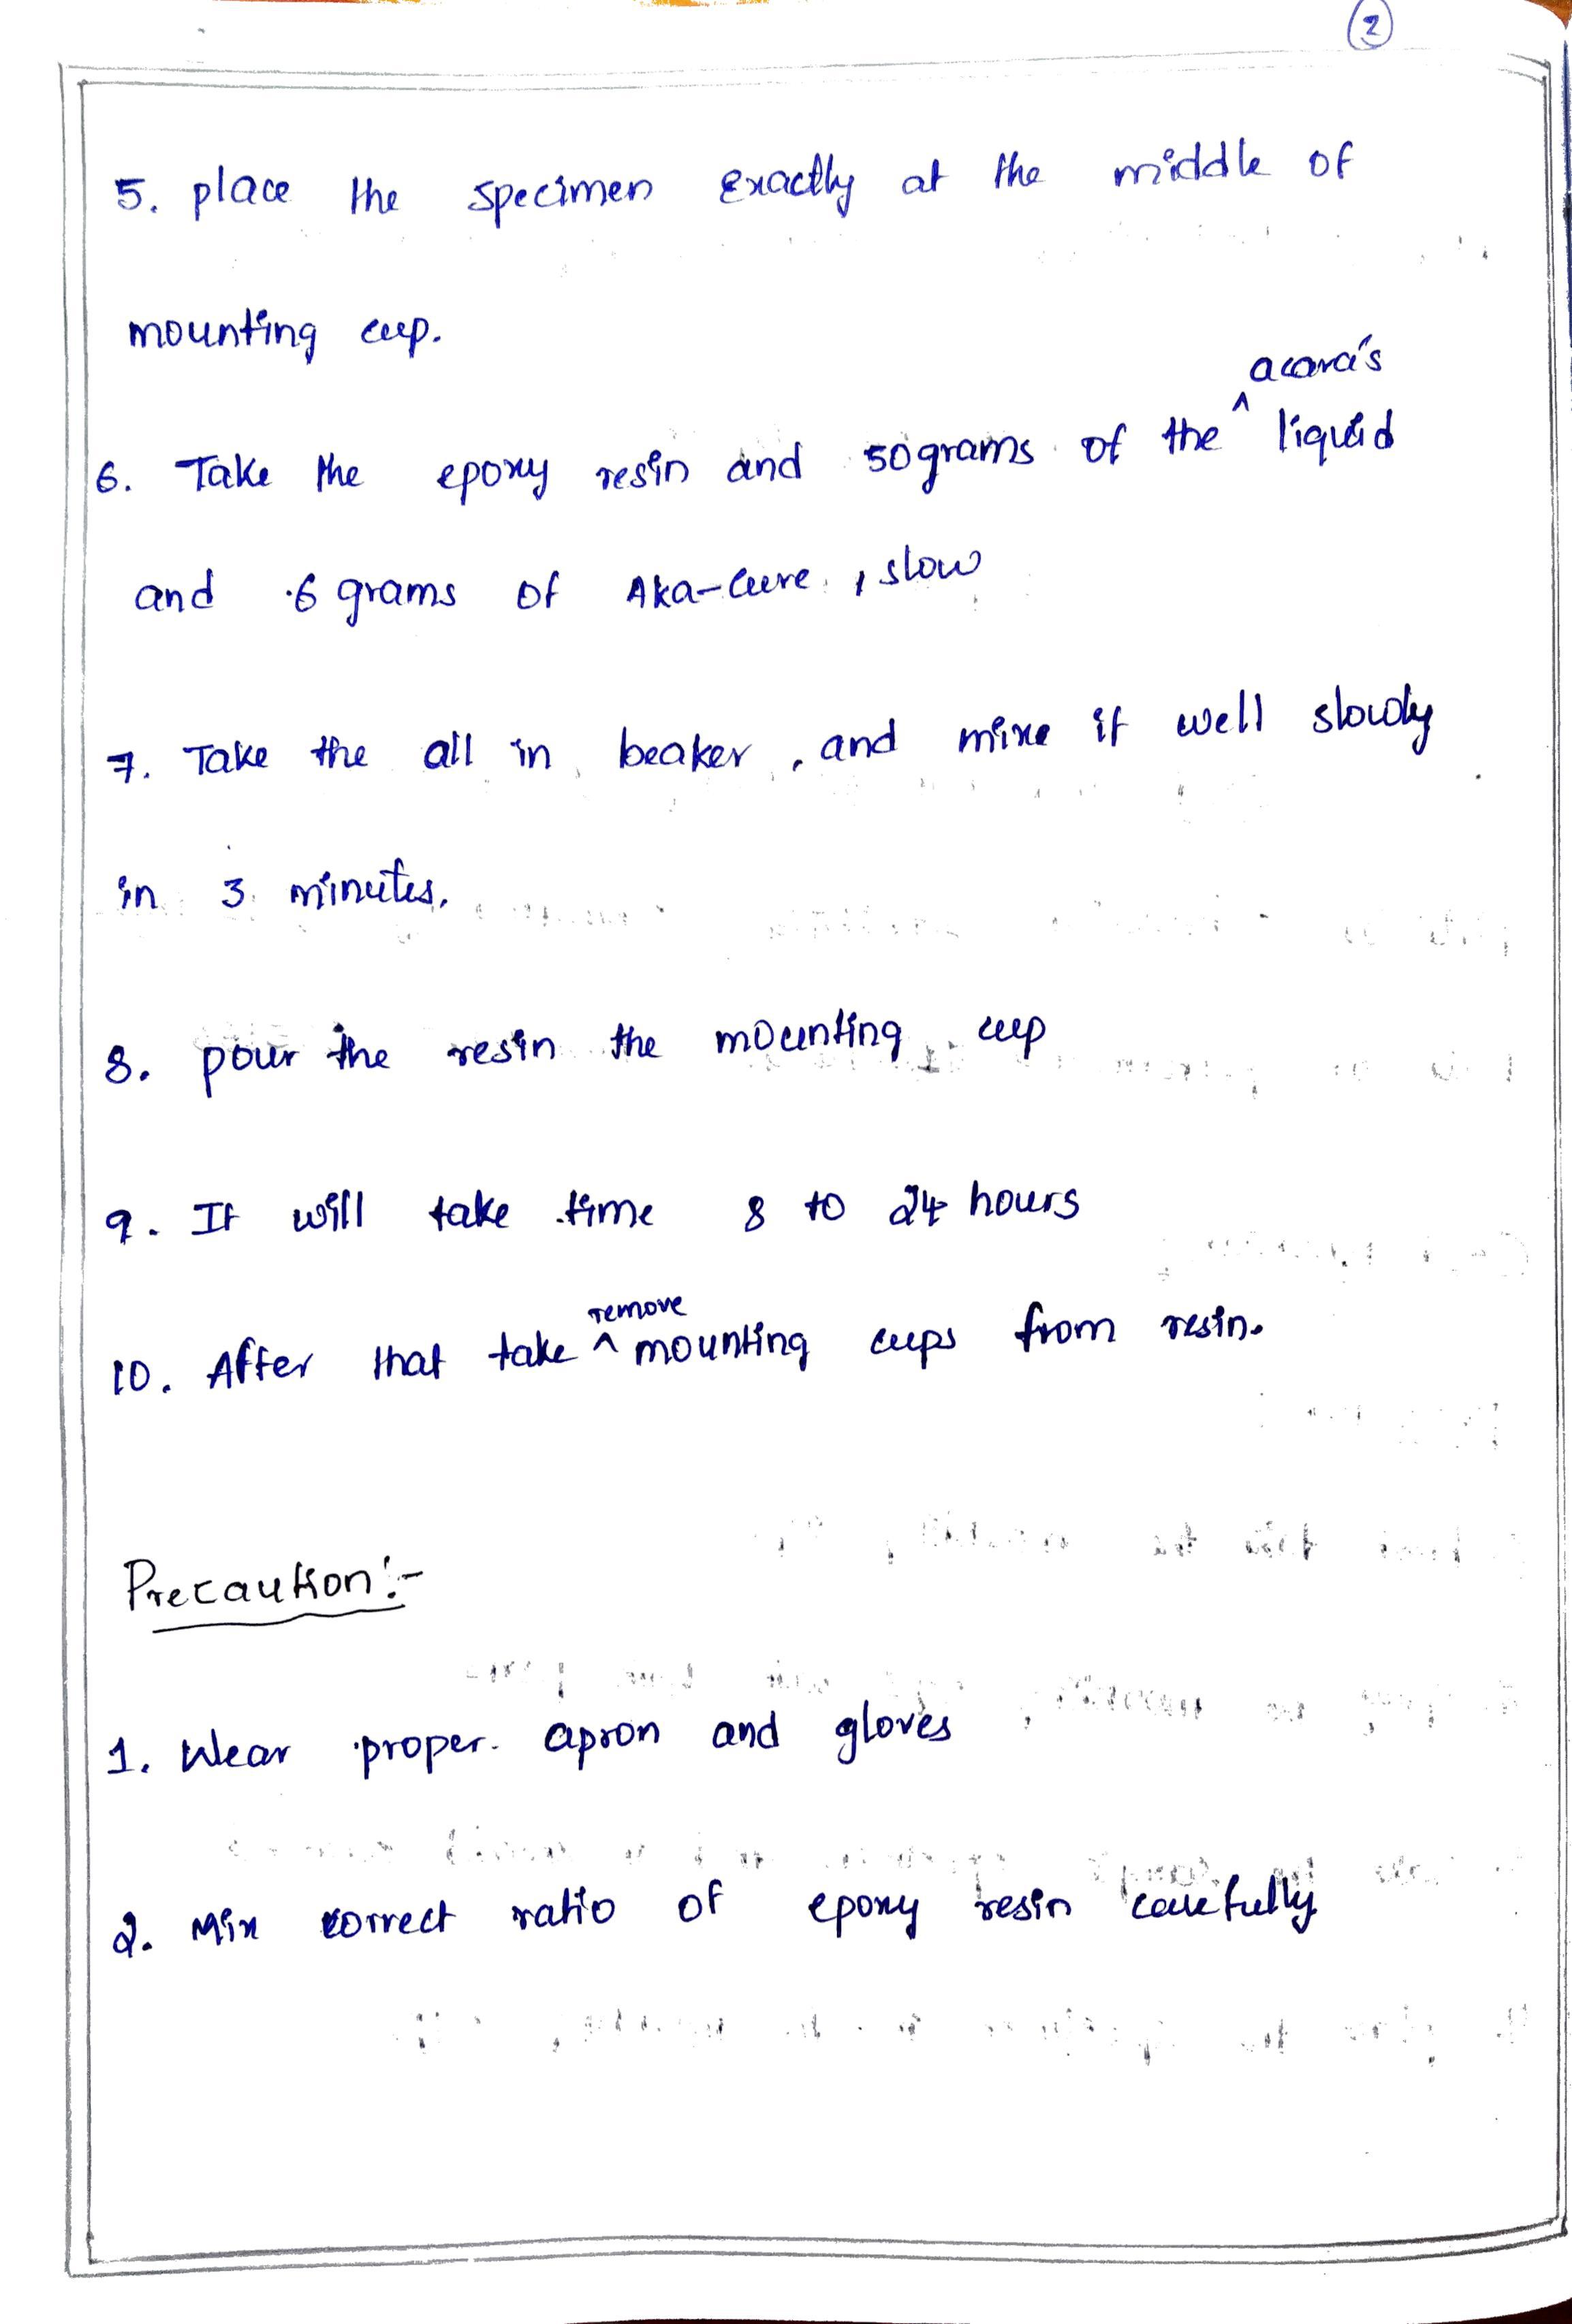 2
5. place the specimen exactly at the middle of
mounting cup.
acara's
6. Take the epoxy resin and 50grams of the ^ liquid
and 6 grams of Aka-Cure, slow
7. Take the all in beaker, and mixe it well slowly
in 3 minutes.
8. pour the resin the mounting cup
9. It will take time 8 to 24 hours
remove
10. After that take ^ mounting cups from resin.
Precaution:-
1. Wear proper. apron and gloves
2. Mix correct ratio of epoxy resin carefully